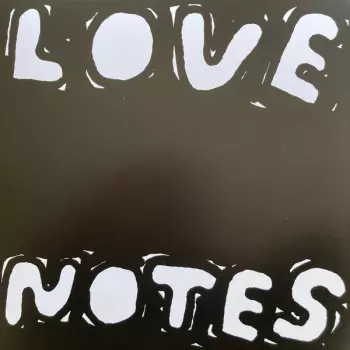 LOVE
NOTES